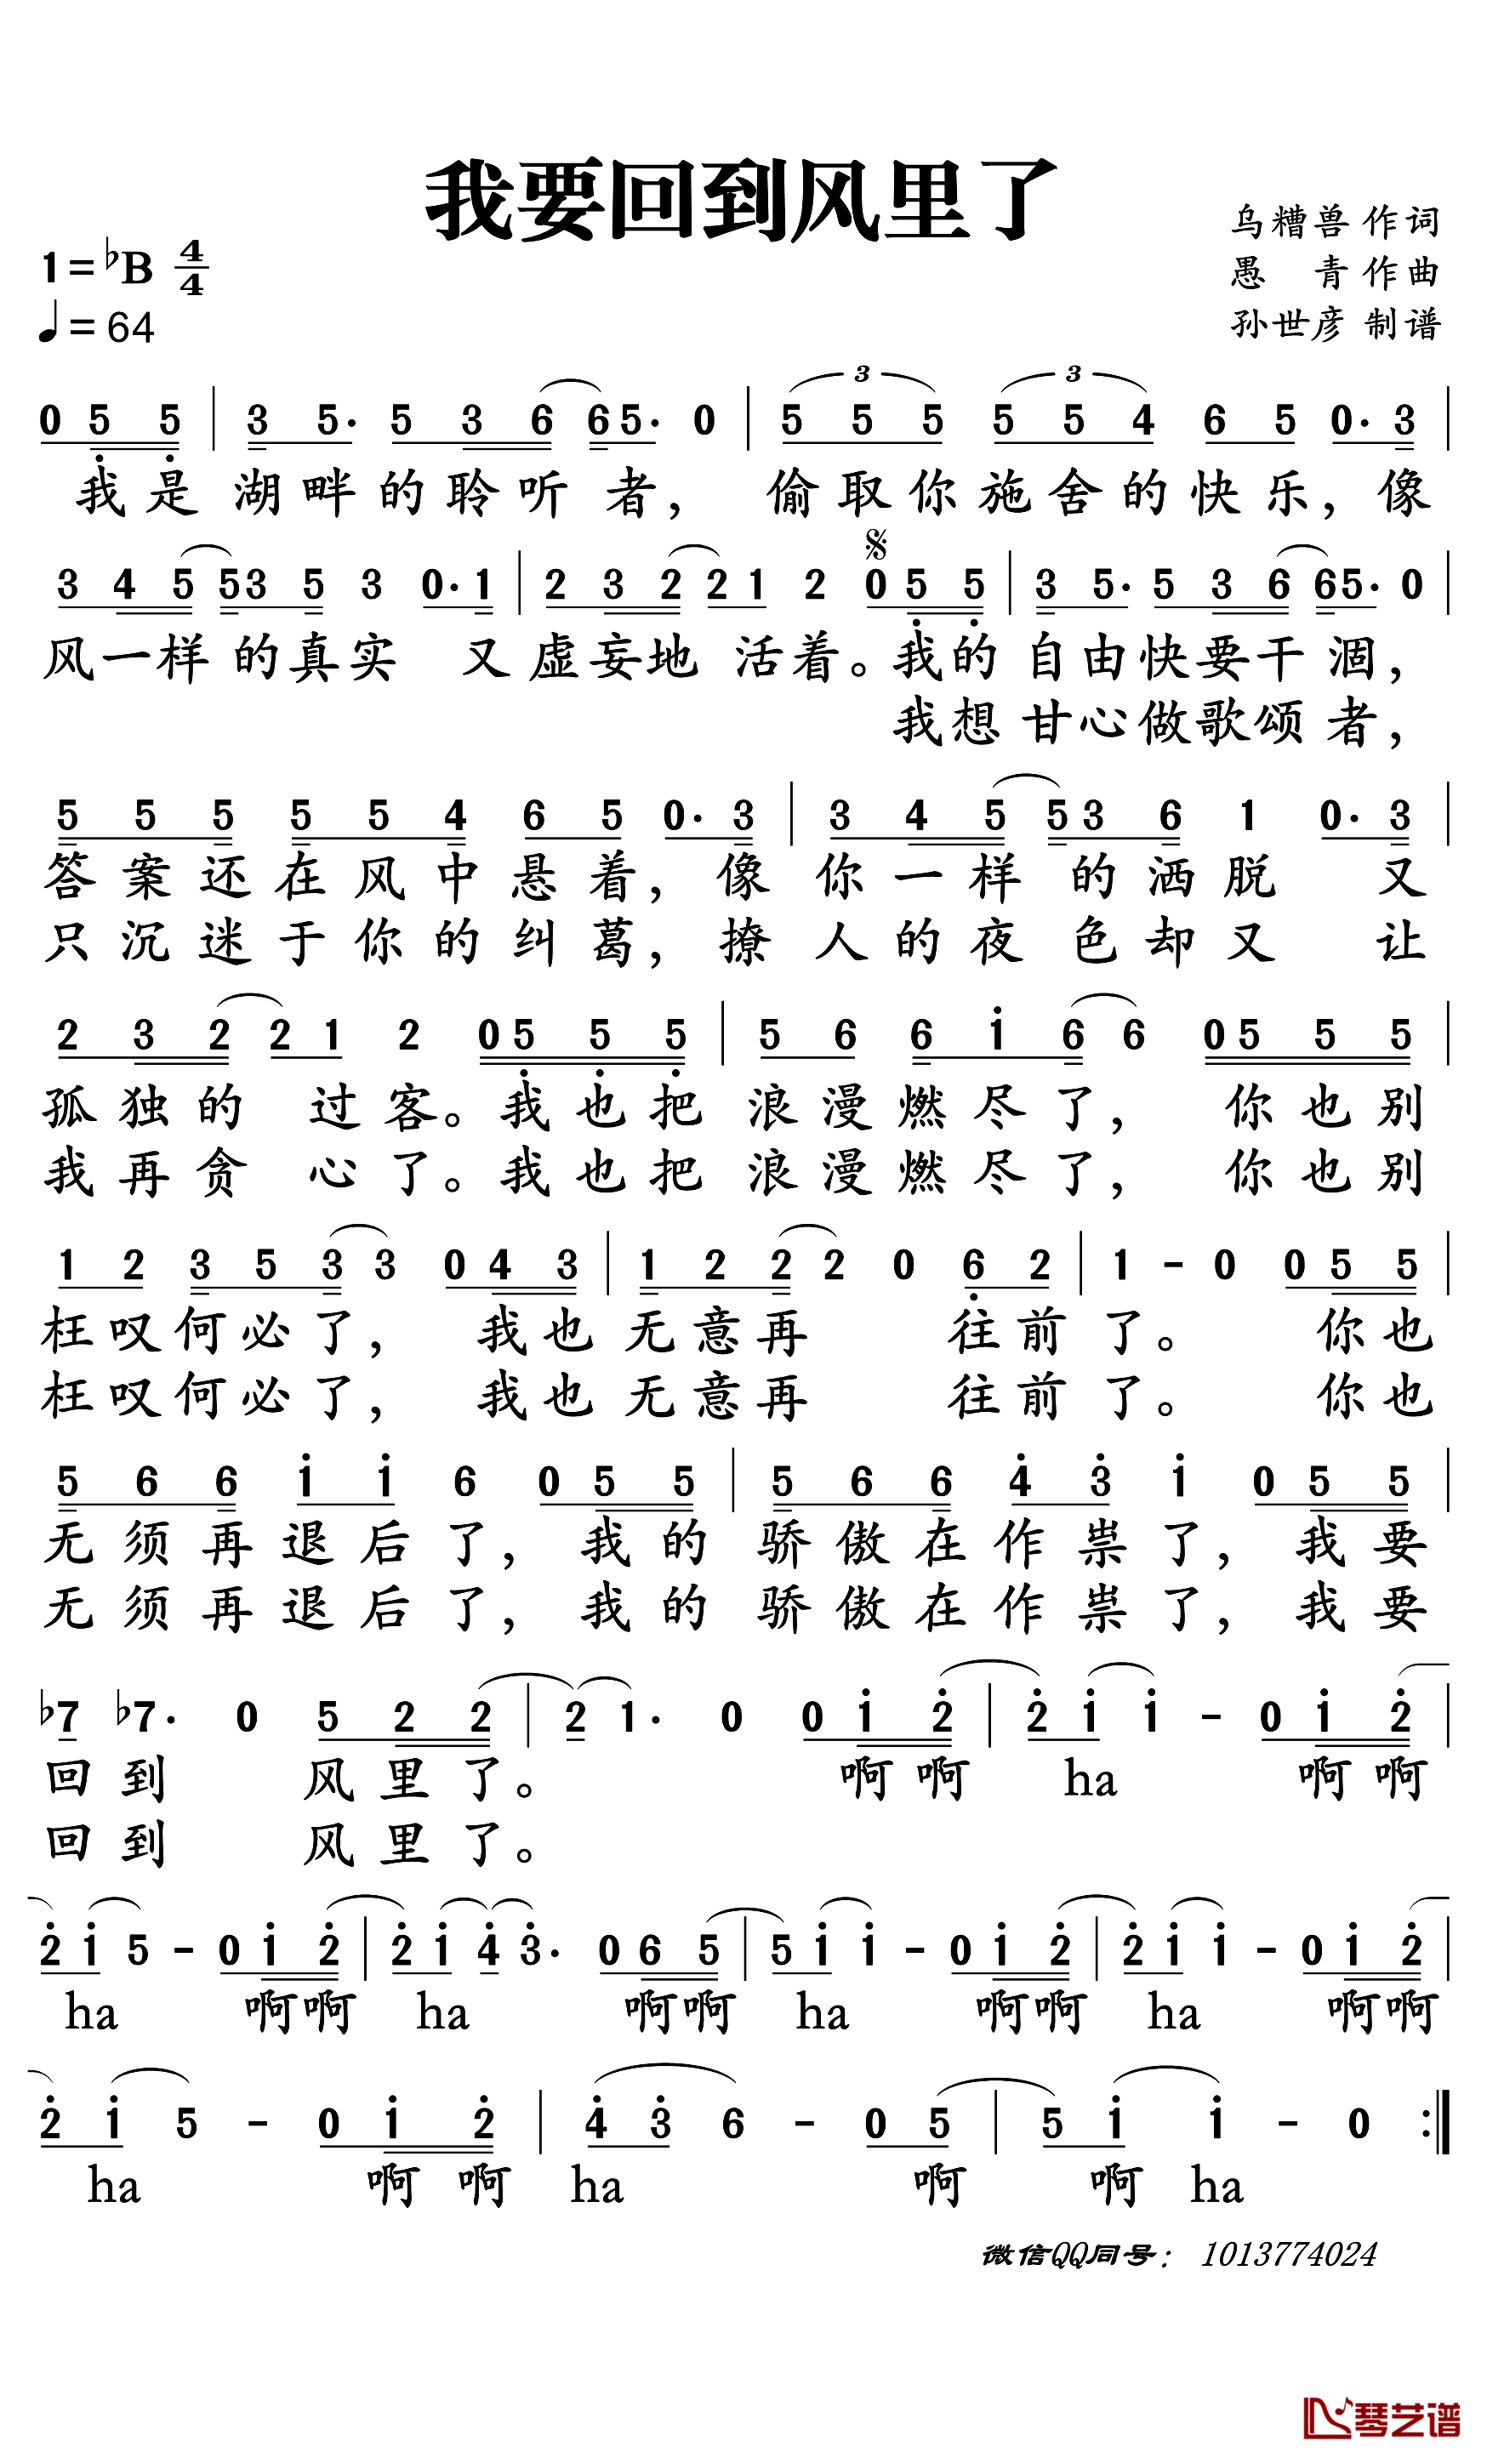 我要回到风里了
乌糟兽 作词
1=♭B 4/4
愚 青 作曲
♩=64
孙世彦 制谱
0 5̣ 5̣ | 3 5· 5 3 6 6 5· 0 | 5 5 5 5 5 4 6 5 0· 3 |
3 3
我是 湖畔的聆听 者， 偷取你施舍的快乐，像
3 4 5 5 3 5 3 0· 1 | 2 3 2 2 1 2 𝄋 0 5̣ 5̣ | 3 5· 5 3 6 6 5· 0 |
风一样 的真实 又 虚妄地 活着。我的 自由快要干 涸，
我想 甘心做歌颂 者，
5 5 5 5 5 4 6 5 0· 3 | 3 4 5 5 3 6 1 0· 3 |
答案还在风中悬着，像 你一样 的洒脱 又
只沉迷于你的纠葛，撩 人的夜 色却又 让
2 3 2 2 1 2 0 5̣ 5̣ 5̣ | 5 6 6 i 6 6 0 5 5 5 |
孤独的 过客。我也把 浪漫燃尽了， 你也别
我再贪 心了。我也把 浪漫燃尽了， 你也别
1 2 3 5 3 3 0 4 3 | 1 2 2 2 0 6̣ 2 | 1 - 0 0 5 5 |
枉叹何必了， 我也 无意再 往前 了。 你也
枉叹何必了， 我也 无意再 往前 了。 你也
5 6 6 i i 6 0 5 5 | 5 6 6 4̇ 3̇ i 0 5 5 |
无须再退后了， 我的 骄傲在作祟了，我要
无须再退后了， 我的 骄傲在作祟了，我要
♭7 ♭7· 0 5 2 2 | 2 1· 0 0 i 2̇ | 2̇ i i - 0 i 2̇ |
回到 风里了。 啊啊 ha 啊啊
回到 风里了。
2̇ i 5 - 0 i 2̇ | 2̇ i 4̇ 3̇· 0 6 5 | 5 i i - 0 i 2̇ | 2̇ i i - 0 i 2̇ |
ha 啊啊 ha 啊啊 ha 啊啊 ha 啊啊
2̇ i 5 - 0 i 2̇ | 4̇ 3̇ 6 - 0 5 | 5 i i - 0 :‖
ha 啊啊 ha 啊 啊 ha
微信QQ同号： 1013774024
琴艺谱